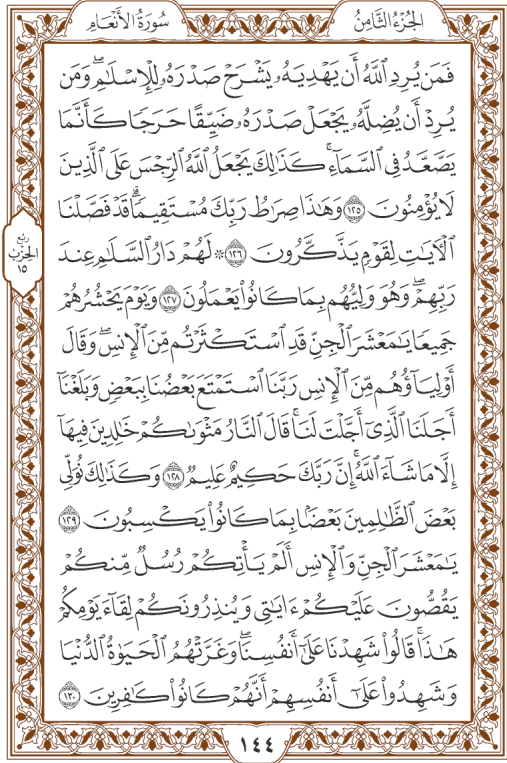 الجُزْءُ الثَّامِنُ
سُورَةُ الأَنْعَام
فَمَن يُرِدِ ٱللَّهُ أَن يَهْدِيَهُۥ يَشْرَحْ صَدْرَهُۥ لِلْإِسْلَٰمِۖ وَمَن
يُرِدْ أَن يُضِلَّهُۥ يَجْعَلْ صَدْرَهُۥ ضَيِّقًا حَرَجًا كَأَنَّمَا
يَصَّعَّدُ فِي ٱلسَّمَآءِۚ كَذَٰلِكَ يَجْعَلُ ٱللَّهُ ٱلرِّجْسَ عَلَى ٱلَّذِينَ
لَا يُؤْمِنُونَ ١٢٥ وَهَٰذَا صِرَٰطُ رَبِّكَ مُسْتَقِيمًاۗ قَدْ فَصَّلْنَا
ٱلْأٓيَٰتِ لِقَوْمٍ يَذَّكَّرُونَ ١٢٦ ۞ لَهُمْ دَارُ ٱلسَّلَٰمِ عِندَ
رَبِّهِمْۖ وَهُوَ وَلِيُّهُم بِمَا كَانُوا۟ يَعْمَلُونَ ١٢٧ وَيَوْمَ يَحْشُرُهُمْ
جَمِيعًا يَٰمَعْشَرَ ٱلْجِنِّ قَدِ ٱسْتَكْثَرْتُم مِّنَ ٱلْإِنسِۖ وَقَالَ
أَوْلِيَآؤُهُم مِّنَ ٱلْإِنسِ رَبَّنَا ٱسْتَمْتَعَ بَعْضُنَا بِبَعْضٍ وَبَلَغْنَآ
أَجَلَنَا ٱلَّذِيٓ أَجَّلْتَ لَنَاۚ قَالَ ٱلنَّارُ مَثْوَىٰكُمْ خَٰلِدِينَ فِيهَآ
إِلَّا مَا شَآءَ ٱللَّهُۗ إِنَّ رَبَّكَ حَكِيمٌ عَلِيمٌ ١٢٨ وَكَذَٰلِكَ نُوَلِّي
بَعْضَ ٱلظَّٰلِمِينَ بَعْضًۢا بِمَا كَانُوا۟ يَكْسِبُونَ ١٢٩
يَٰمَعْشَرَ ٱلْجِنِّ وَٱلْإِنسِ أَلَمْ يَأْتِكُمْ رُسُلٌ مِّنكُمْ
يَقُصُّونَ عَلَيْكُمْ ءَايَٰتِي وَيُنذِرُونَكُمْ لِقَآءَ يَوْمِكُمْ
هَٰذَاۚ قَالُوا۟ شَهِدْنَا عَلَىٰٓ أَنفُسِنَاۖ وَغَرَّتْهُمُ ٱلْحَيَوٰةُ ٱلدُّنْيَا
وَشَهِدُوا۟ عَلَىٰٓ أَنفُسِهِمْ أَنَّهُمْ كَانُوا۟ كَٰفِرِينَ ١٣٠
ربع
الحزب
١٥
١٤٤